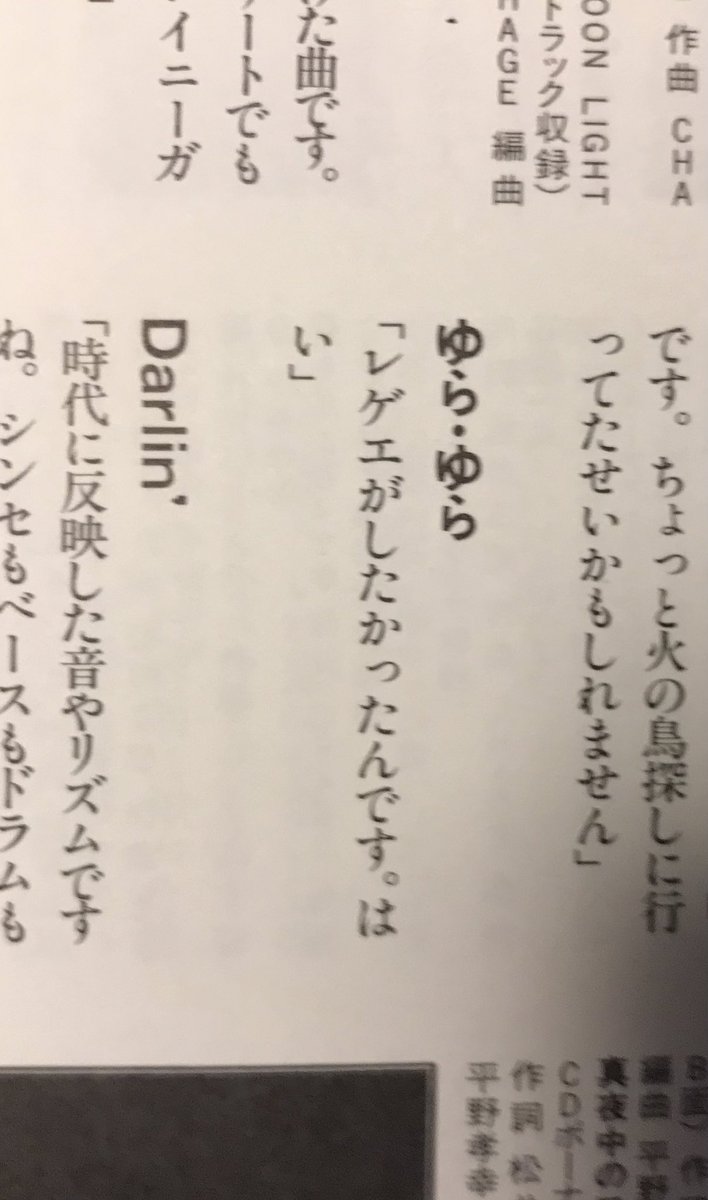 作曲 CHA
OON LIGHT
トラック収録）
HAGE 編曲
た曲です。
ートでも
イニーガ
です。ちょっと火の鳥探しに行
ってたせいかもしれません」
ゆら・ゆら
「レゲエがしたかったんです。は
い」
Darlin'
「時代に反映した音やリズムです
ね。シンセもベースもドラムも
B面）作
編曲 平野
真夜中の
CDボー
作詞 松
平野孝幸